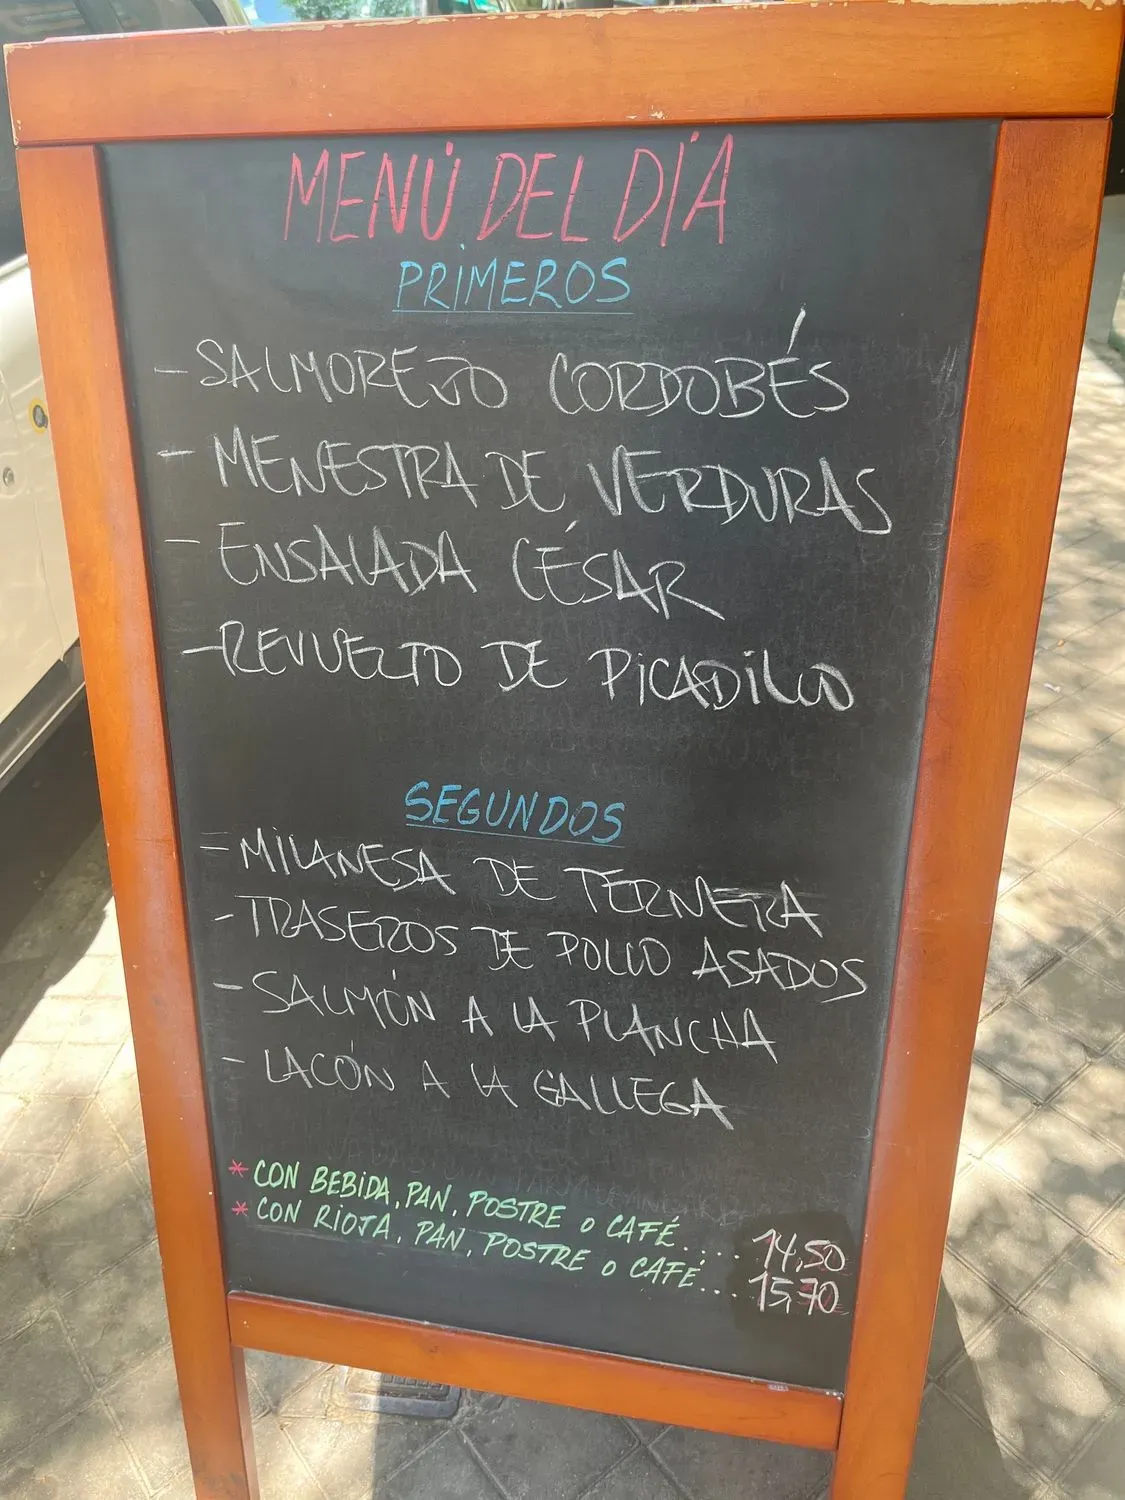 MENÚ DEL DÍA
PRIMEROS
- SALMOREJO CORDOBÉS
- MENESTRA DE VERDURAS
- ENSALADA CÉSAR
- REVUELTO DE PICADILLO
SEGUNDOS
= MILANESA DE TERNERA
- TRASEROS DE POLLO ASADOS
- SALMÓN A LA PLANCHA
- LACÓN A LA GALLEGA
* CON BEBIDA, PAN, POSTRE O CAFÉ.... 14,50
* CON RIOJA, PAN, POSTRE O CAFÉ.... 15,70